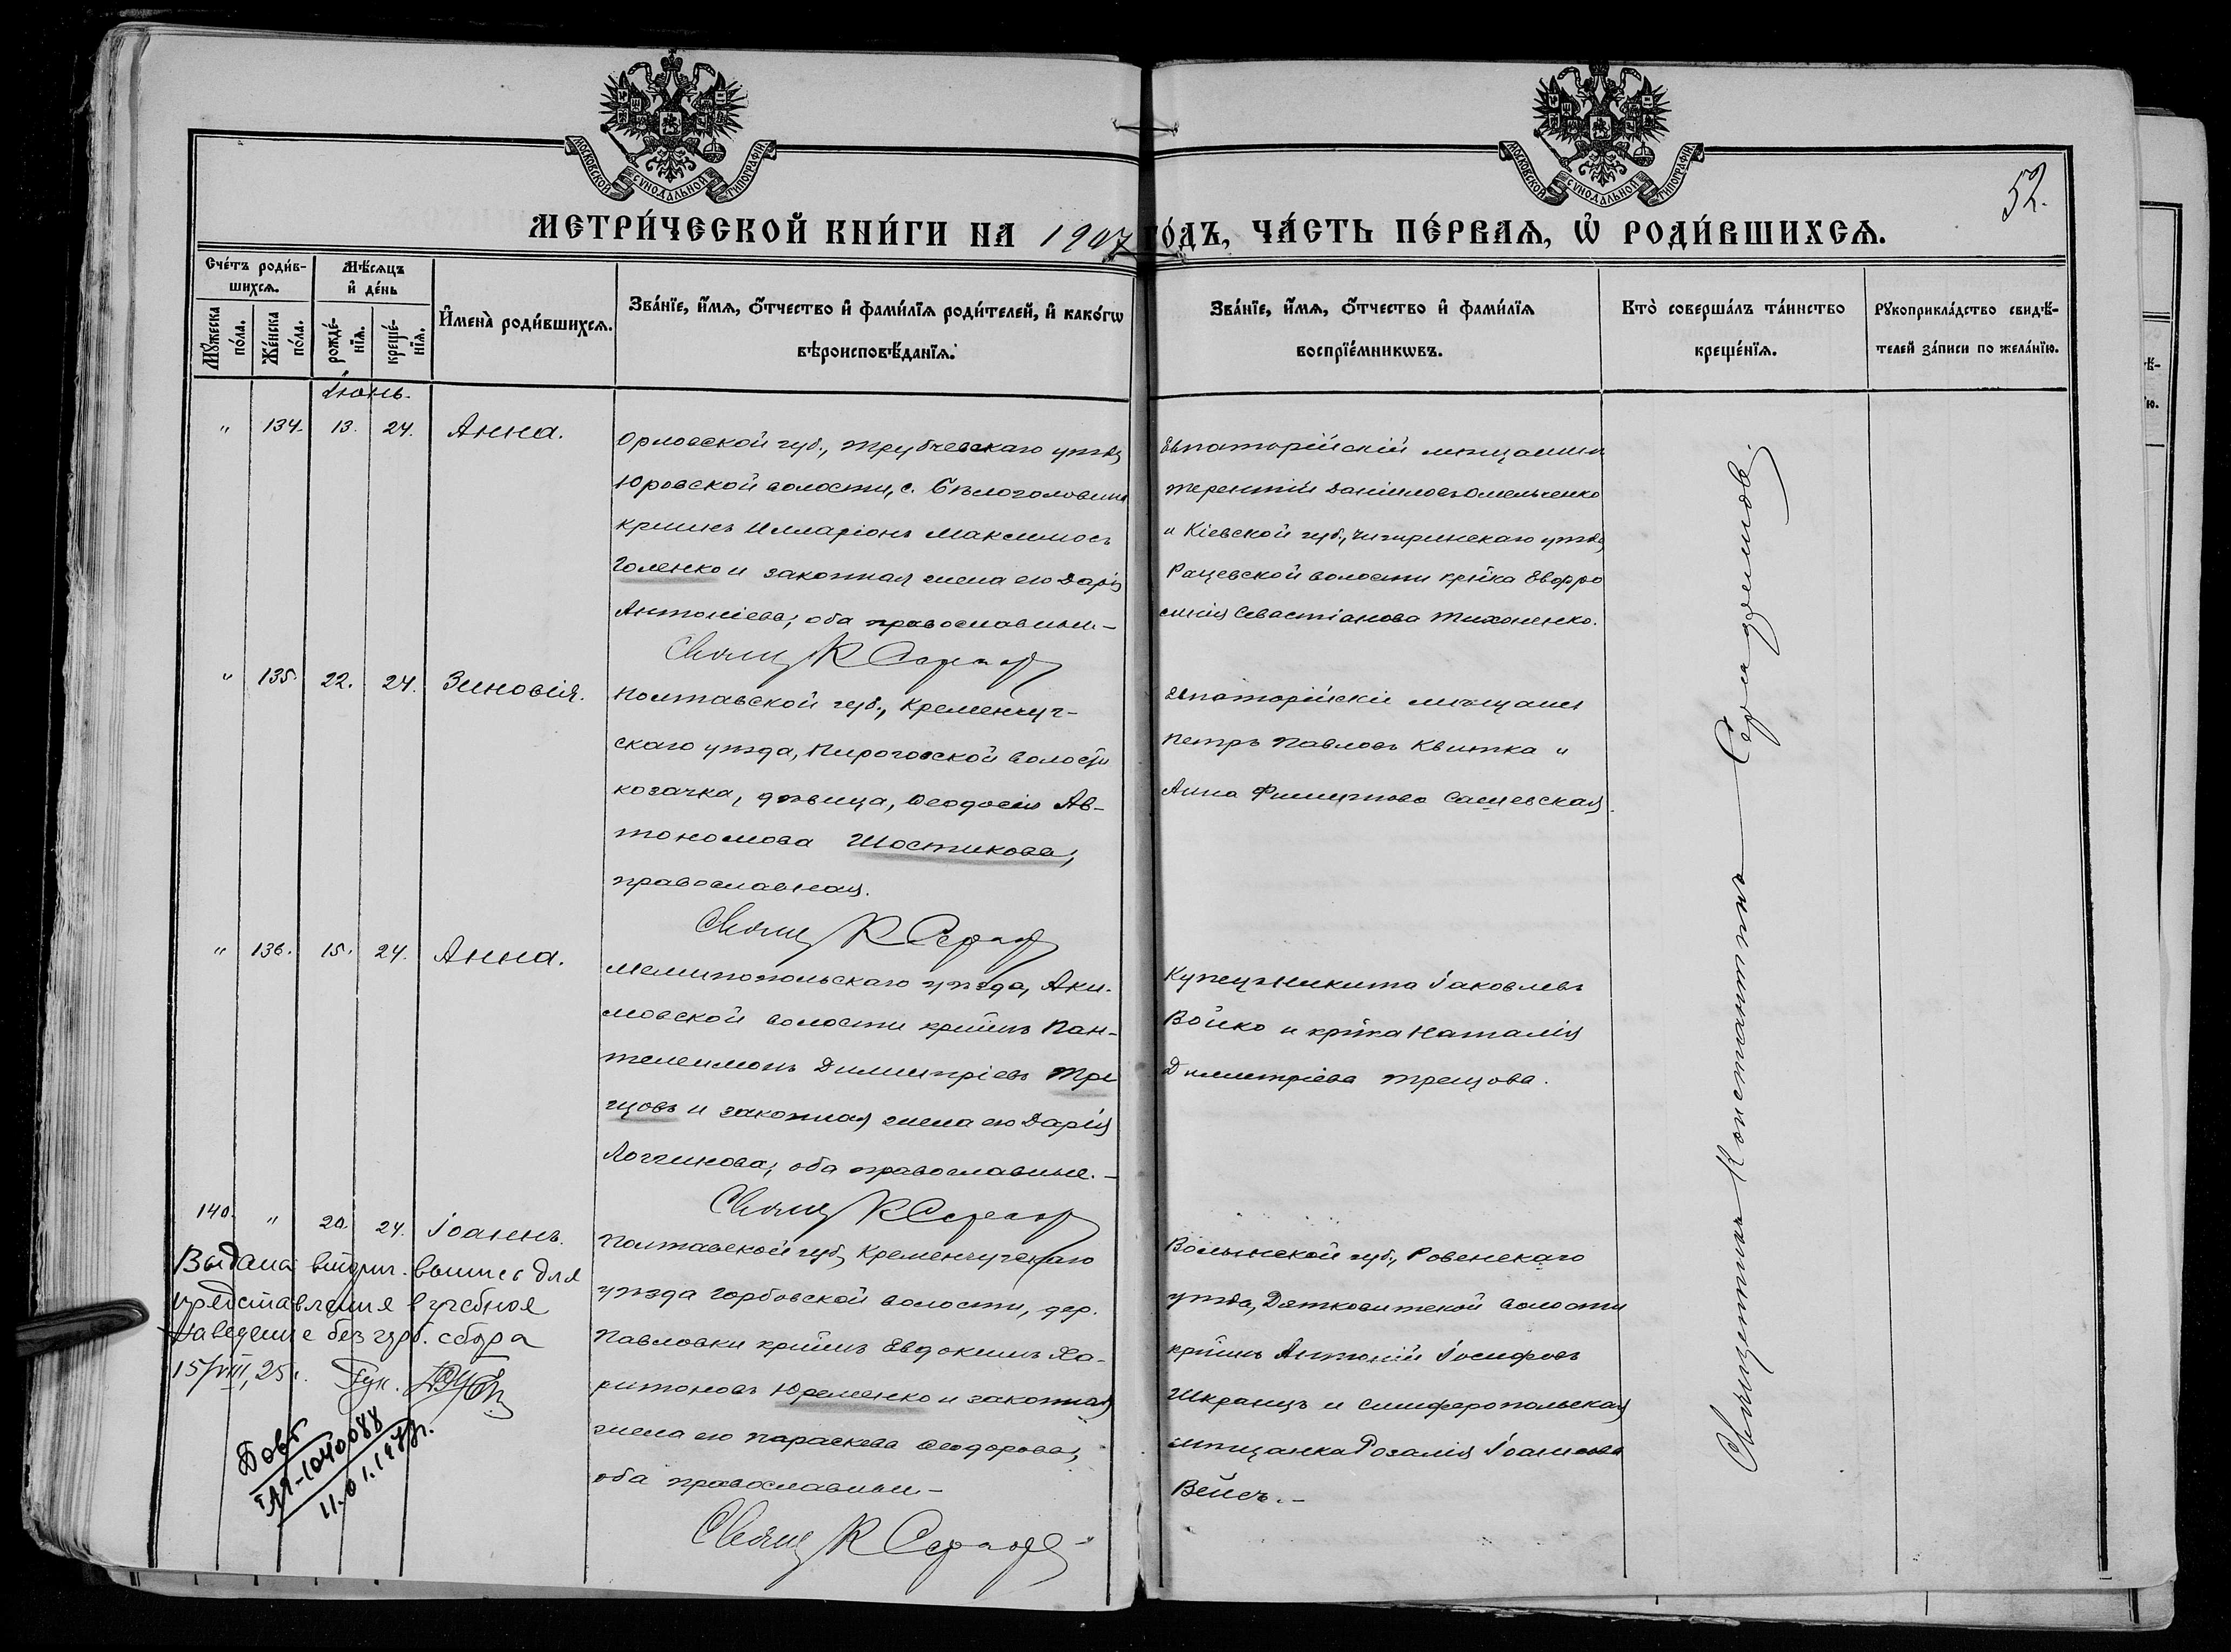 МОСКОВСКОЙ СУНОДАЛЬНОЙ ТИПОГРАФІИ
МОСКОВСКОЙ СУНОДАЛЬНОЙ ТИПОГРАФІИ
52.
МЕТРИ́ЧЕСКОЙ КНИ́ГИ НА 1907 ГО́ДЪ, ЧА́СТЬ ПЕ́РВАѦ, Ѡ РОДИ́ВШИХСѦ.
Сче́тъ роди́в-
шихсѧ.
Мꙋжеска по́ла.
Же́нска по́ла.
Мѣ́сѧцъ
и де́нь
рожде́-
нїѧ.
креще́-
нїѧ.
Имена̀ роди́вшихсѧ.
Зва́нїе, и́мѧ, о́тчество и фами́лїѧ роди́телей, и како́гѡ
вѣроисповѣ́данїѧ.
Зва́нїе, и́мѧ, о́тчество и фами́лїѧ
воспрїе́мникѡвъ.
Кто̀ соверша́лъ та́инство
креще́нїѧ.
Рꙋкоприкла́дство свидѣ́-
телей за́писи по жела́нїю.
Іюнь.
" 134. 13. 24. Анна.
Орловской губ., Трубчевскаго уѣзда
Юровской волости, с. Бѣлоголовли
кр-нинъ Илларіонъ Максимовъ
Голенко и законная жена его Дарія
Антоніева; оба православные –
Свящ К Серандов
Евпаторійскій мѣщанинъ
Терентій Даніиловъ Омельченко
и Кіевской губ., Чигиринскаго уѣзда
Рацевской волости кр-нка Евфро
синія Севастіанова Тихоненко.
" 135. 22. 24. Зиновія.
Полтавской губ., Кременчуг-
скаго уѣзда, Пироговской волости
козачка, дѣвица, Ѳеодосія Ав-
тономова Шостикова;
православная.
Свящ К Серандов
Евпаторійскіе мѣщане
Петръ Павловъ Квитка и
Анна Филиппова
" 136. 15. 24. Анна.
Мелитопольскаго уѣзда, Аки-
мовской волости кр-нинъ Пан-
телеимонъ Димитріевъ Тре
щовъ и законная жена его Дарія
Логгинова; оба православные. –
Свящ К Серандов
Купецъ Никита Іаковлевъ
Бойко и кр-нка Наталія
Димитріева Трещова.
140. " 20. 24. Іоаннъ.
Полтавской губ., Кременчугскаго
уѣзда Горбовской волости, дер.
Павловки кр-нинъ Евдокимъ Ха-
ритоновъ Юременко и законная
жена его Параскева Ѳеодорова;
оба православные –
Свящ К Серандов
Волынской губ., Ровенскаго
уѣзда, Дятковитской волости
кр-нинъ Антоній Іосифовъ
Шкранцъ и симферопольская
мѣщанка Розалія Іоаннова
Вейсъ. –
Священникъ Константинъ
Выдана вторич. выпись для
представления в учебное
заведение без герб. сбора
15/VIII, 25 г.
11.01.1973г.